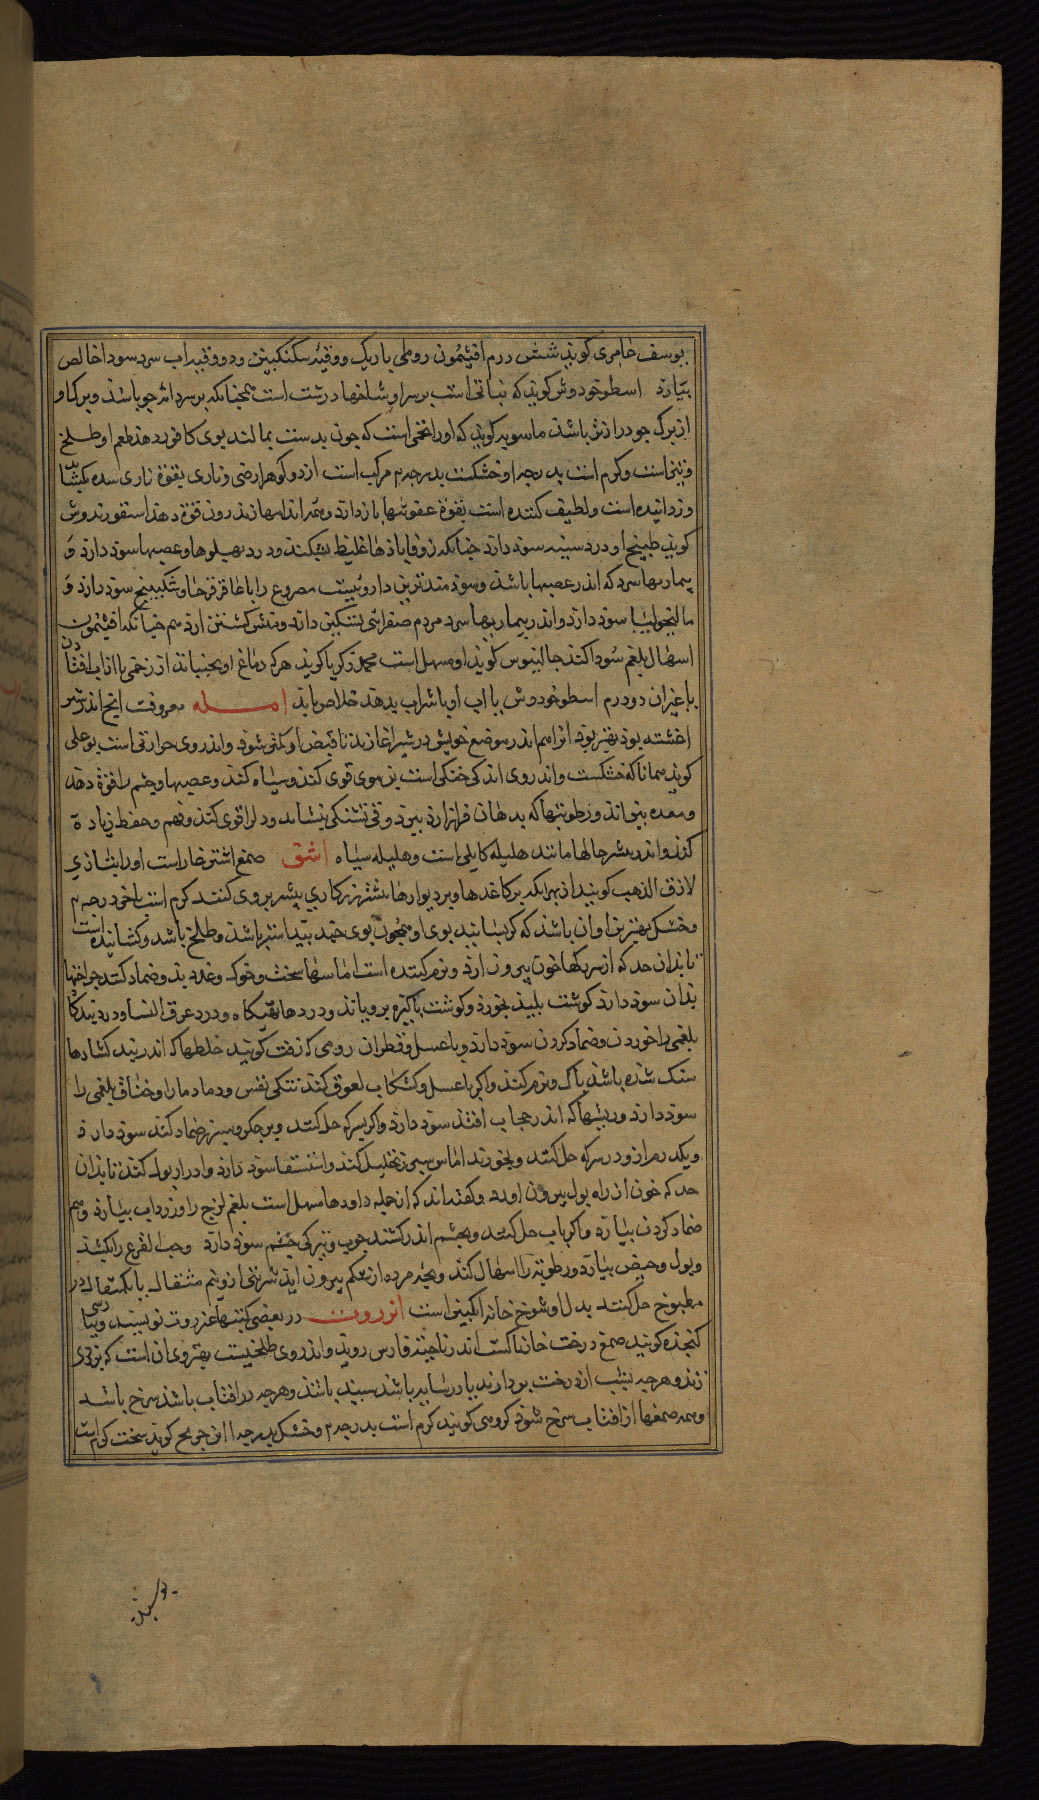 یوسف خامری کوید شش درم افیثمون رومی با ریک ووقیه سکنکبین ودو وقیه اب سرد سودا خالص
بیارد اسطوخودوش کویند که نباتی است برسر او شاخها درشت است همچنانکه برسر دانه جو باشد وبرک او
از برک جو درازتر باشد ماسویه کوید که اورا تخمی است که چون بدست بمالند بوی کافور دهد طعم او طلخ
وتیز است وکرم است بدرجه ا وخشکست بدرجه م مرکب است از دو کوهر ارضی وناری بقوة ناری سده بکشاید
وزداینده است ولطیف کننده است بقوة عفونتها بازدارد وهمه اندامها زندرون قوة دهد اسقوریدوش
کوید طبیخ او درد سینه سود دارد چنانکه زوفا باذها غلیظ بشکند ودرد پهلوها وعصبها سود دارد و
بیماریها سرد که اندر عصبها باشد وسودمندترین داروییست مصروع را با عاقرقرحا وسکبینج سود دارد و
مالیخولیا سود دارد واندر بیماریها سرد مردم صفرائی تشنکی دارد ومنش کشتن ارد هم چنانکه افیثمون
اسهال بلغم سودا کند جالینوس کوید او مسهل است محمد زکریا کوید هرکه دماغ او بجنباند از زخمی یا از اب افتادن
یا غیر ان دو درم اسطوخودوش با اب او یا شراب بدهد خلاص یابد امله معروفست انچ اندر شیر
اغشته بود بهتر بود انرا هم اندر موضع خویش در شیر اغازند تا قبض او کمتر شود واندروی حرارتی است بوعلی
کوید همانا که خشکست واندر وی اندکی خنکی است بن موی قوی کند وسیاه کند وعصبها وچشم را قوة دهد
ومعده بنیراند ورطوبتها که بدهان فراز ارد ببرد وقی تشنکی بنشاند ودل را قوی کند وفهم وحفظ زیادة
کند واندر بیشر حالها مانند هلیله کابلی است وهلیله سیاه اشق صمغ اشترخار است اورا بتازی
لازق الذهب کویند از بهر انکه بر کاغدها وبر دیوارها نقش زرکاری بیشر بروی کنند کرم است اخر درجه م
وخشک بهترین او ان باشد که کر بسایند بوی او همچون بوی جند بیدستر باشد وطلخ باشد وکشاینده است
تا بدان حد که از سر رکها خون بیرون ارد ونرم کننده است اماسها سخت وخوک وغدد بدو ضماد کنند جراحتها
بدان سود دارد کوشت پلید بخورد وکوشت پاکیزه برویاند ودردها تهیکاه ودرد عرق النسا ودرد بندکا
بلغمی را خوردن وضماد کردن سود دارد وبا عسل وقطران رومی که زفت کویند خلطها که اندر بند کشادها
سنک شده باشد پاک ونرم کند واکر با عسل وکشکاب لعوق کنند تنکی نفس ودمادما را وخناق بلغمی را
سود دارد وریشها که اندر حجاب افتد سود دارد واکر بسرکه حل کنند وبر جکر وسپرز ضماد کنند سود دارد
ویکدرم ازو در سرکه حل کنند وبخورند اماس سپرز تحلیل کند واستسقا سود دارد وادرار بول کند تا بدان
حد که خون از راه بول بیرون اورد وکفتهاند که از جمله داروها مسهل است بلغم لزج را وزرداب بیارد وهم
ضماد کردن بیارد واکر باب حل کنند وبچشم اندر کشند جرب وتیرکی چشم سود دارد وحب القرع را بکشد
وبول وحیض بیارد ورطوبتها را اسهال کند وبچه مرده از شکم بیرون ارد شربتی ازو نیم مثقال یا یک مثقال در
مطبوخ حل کنند بدل او شوخ خانه انکبین است انزروت در بعضی کتبها عنزروت نویسند وبپارسی
کنجذه کویند صمغ درخت خارناکست اندر ناحیت فارس روید واندر وی طلخیست بهتر وی ان است که بزردی
زند وهرچه بشب از درخت بردارند یا در سایه باشد سپید باشد وهرچه در افتاب باشد سرخ باشد
وهمه صمغها از افتاب سرخ شود کروهی کویند کرم است بدرجه م وخشک بدرجه ا ابن جریح کوید سخت کرم است